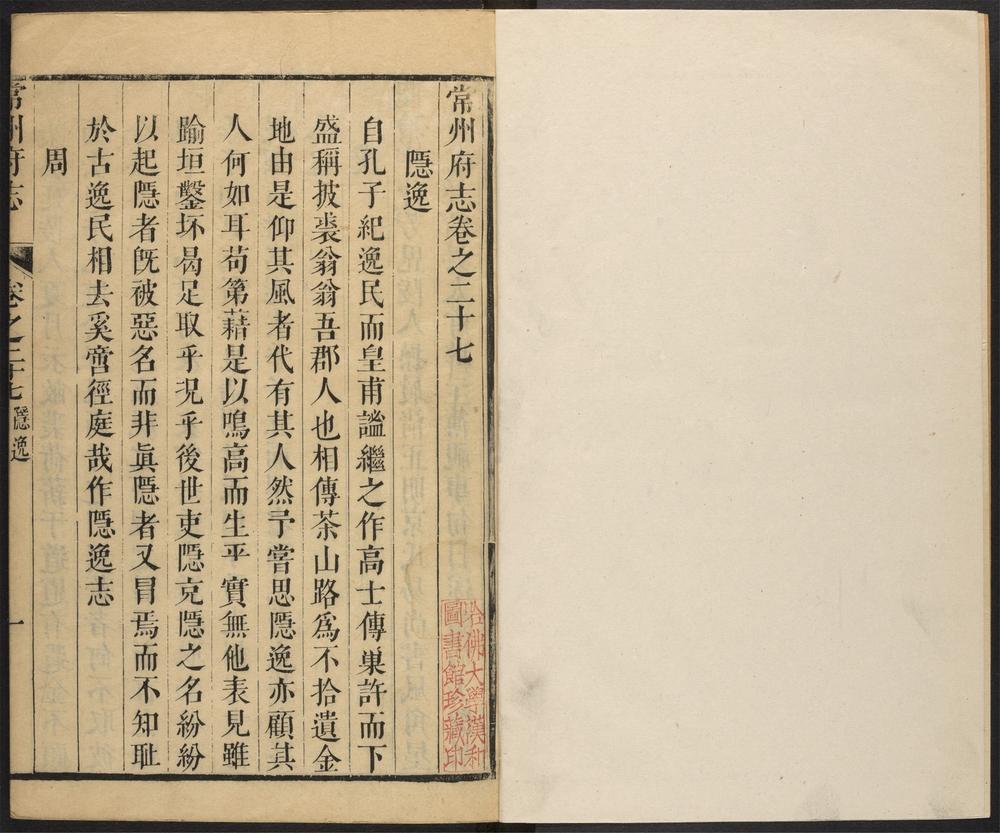 常州府志卷之二十七
隱逸
自孔子紀逸民而皇甫謐繼之作高士傳巢許而下
盛稱披裘翁翁吾郡人也相傳茶山路爲不拾遺金
地由是仰其風者代有其人然予嘗思隱逸亦顧其
人何如耳苟第藉是以鳴高而生平實無他表見雖
踰垣鑿坏曷足取乎况乎後世吏隱充隱之名紛紛
以起隱者旣被惡名而非眞隱者又冒焉而不知耻
於古逸民相去奚啻徑庭哉作隱逸志
周
常州府志
卷之二十七
隱逸
一
哈佛大學漢和
圖書館珍藏印